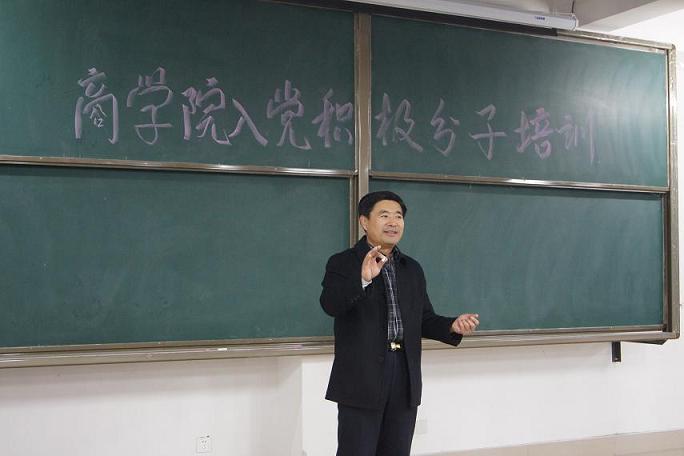 商学院入党积极分子培训